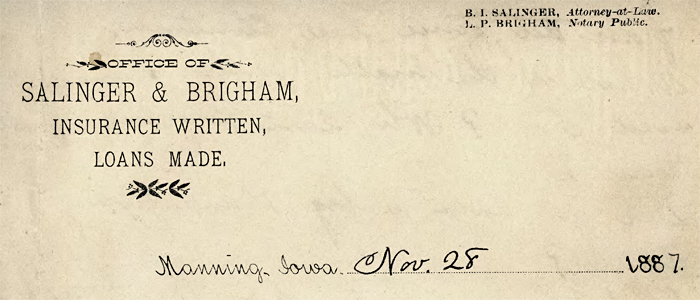 B. I. SALINGER, Attorney-at-Law.
L. P. BRIGHAM, Notary Public.
OFFICE OF
SALINGER & BRIGHAM,
INSURANCE WRITTEN,
LOANS MADE.
Manning, Iowa. Nov. 28 1887.